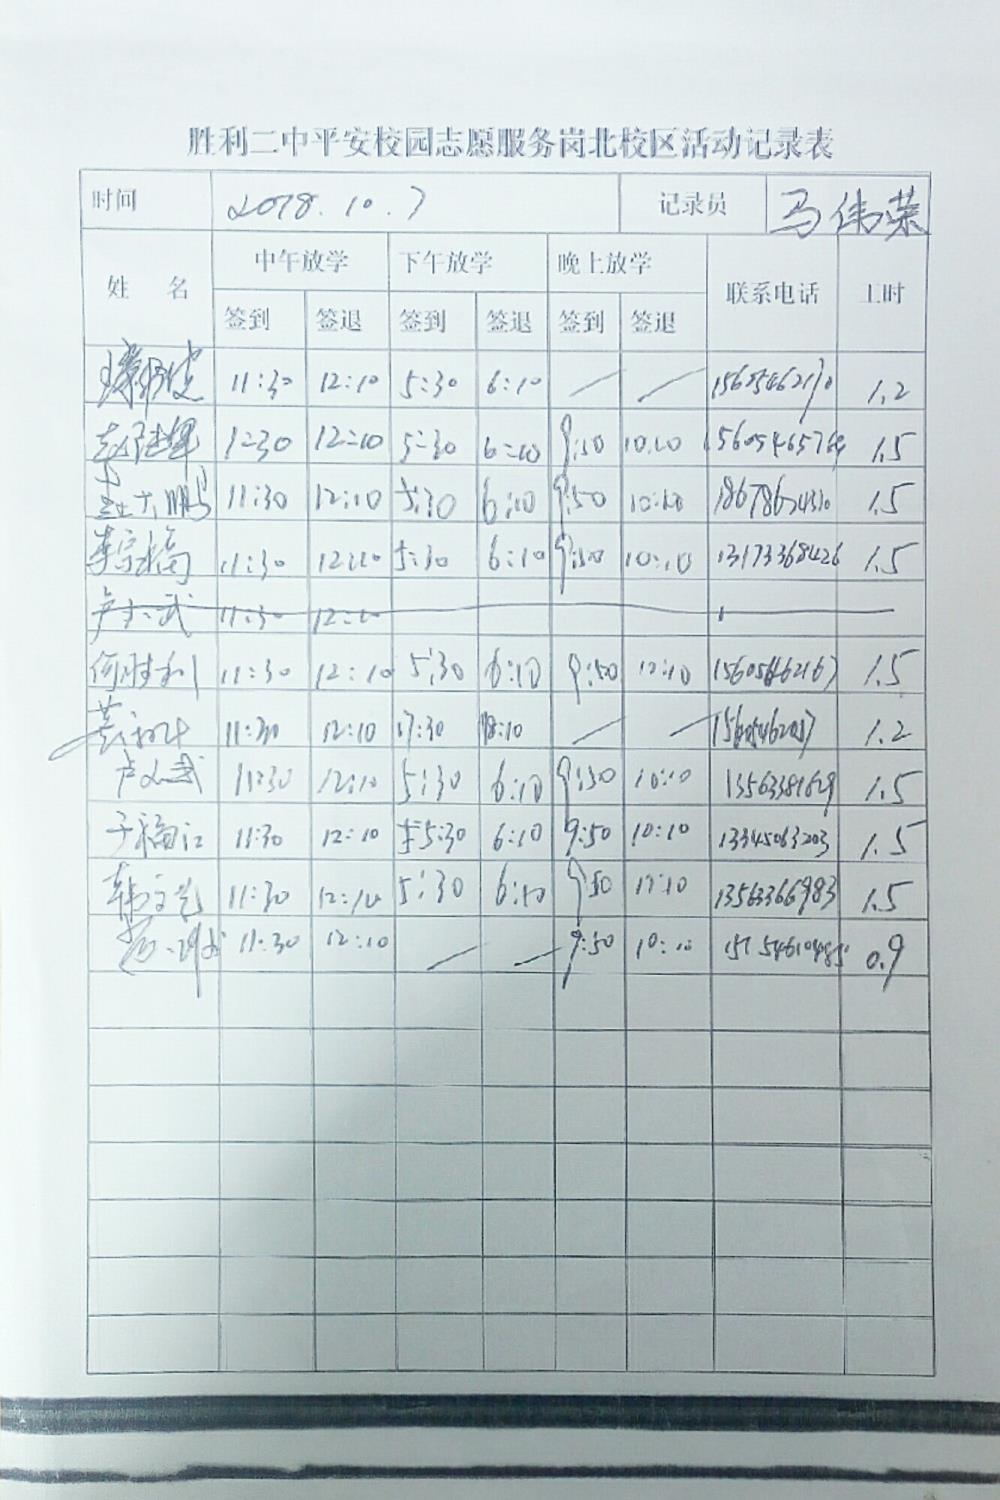 胜利二中平安校园志愿服务岗北校区活动记录表
时间 2018.10.7 记录员 马伟荣
姓 名 中午放学 下午放学 晚上放学 联系电话 工时
签到 签退 签到 签退 签到 签退
11:30 12:10 5:30 6:10 / / 1.2
12:10 5:30 6:10 9:50 10:10 1.5
11:30 12:10 5:30 6:10 9:50 10:10 1.5
李宗福 11:30 12:10 5:30 6:10 9:50 10:10 13173368426 1.5
卢文武 11:30 12:10
何胜利 11:30 12:10 5:30 6:10 9:50 10:10 15605462167 1.5
11:30 12:10 17:30 18:10 / / 1.2
卢文武 11:30 12:10 5:30 6:10 9:50 10:10 1.5
于福江 11:30 12:10 5:30 6:10 9:50 10:10 13345063203 1.5
韩文艺 11:30 12:10 5:30 6:10 9:50 10:10 13563366983 1.5
11:30 12:10 / / 9:50 10:10 0.9